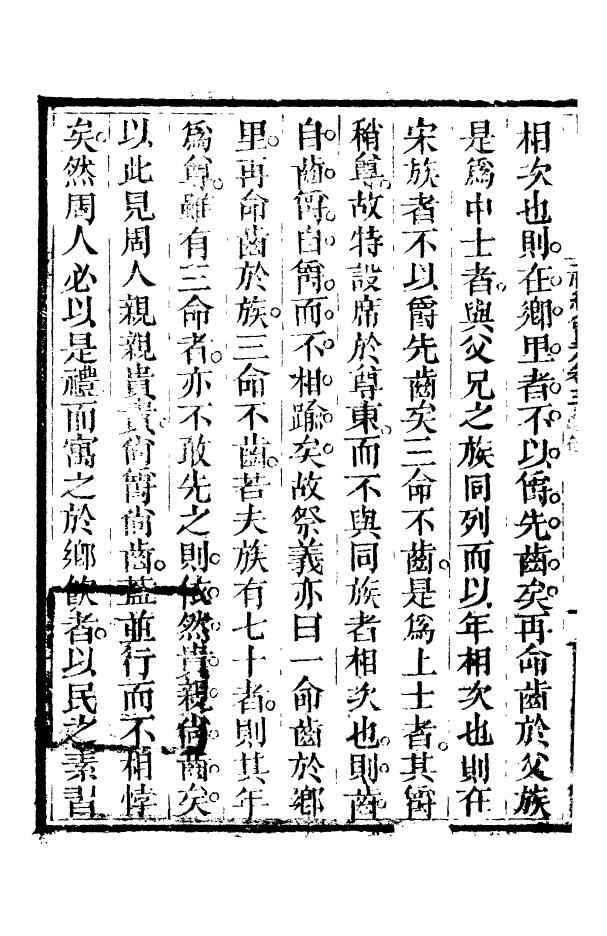 相次也則在鄉里者不以爵先齒矣再命齒於父族
是爲中士者與父兄之族同列而以年相次也則在
宋族者不以爵先齒矣三命不齒是爲上士者其爵
稍尊故特設席於尊東而不與同族者相次也則齒
自齒爵自爵而不相踰矣故祭義亦曰一命齒於鄉
里再命齒於族三命不齒若夫族有七十者則其年
爲尊雖有三命者亦不敢先之則依然貴親尙齒矣
以此見周人親親貴貴尙爵尙齒蓋並行而不相悖
矣然周人必以是禮而寓之於鄉飮者以民之素習